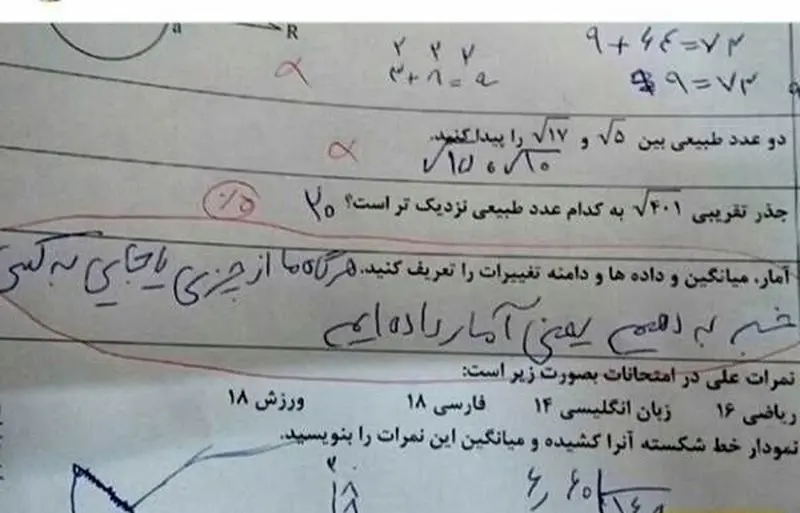 a
R
۲ ۲ ۲
۹ + ۶۴ = ۷۳
۳ + ۸ =
۹ = ۷۳
دو عدد طبیعی بین √۵ و √۱۷ را پیدا کنید.
√۱۵ و √۱۰
جذر تقریبی √۴۰۱ به کدام عدد طبیعی نزدیک تر است؟ ۲۰
آمار، میانگین و داده ها و دامنه تغییرات را تعریف کنید. هرگاه ما از چیزی یا جایی به کسی
خبر بدهیم یعنی آمار داده ایم
نمرات علی در امتحانات بصورت زیر است:
ریاضی ۱۶ زبان انگلیسی ۱۴ فارسی ۱۸ ورزش ۱۸
نمودار خط شکسته آنرا کشیده و میانگین این نمرات را بنویسید.
۲۰
۱۸